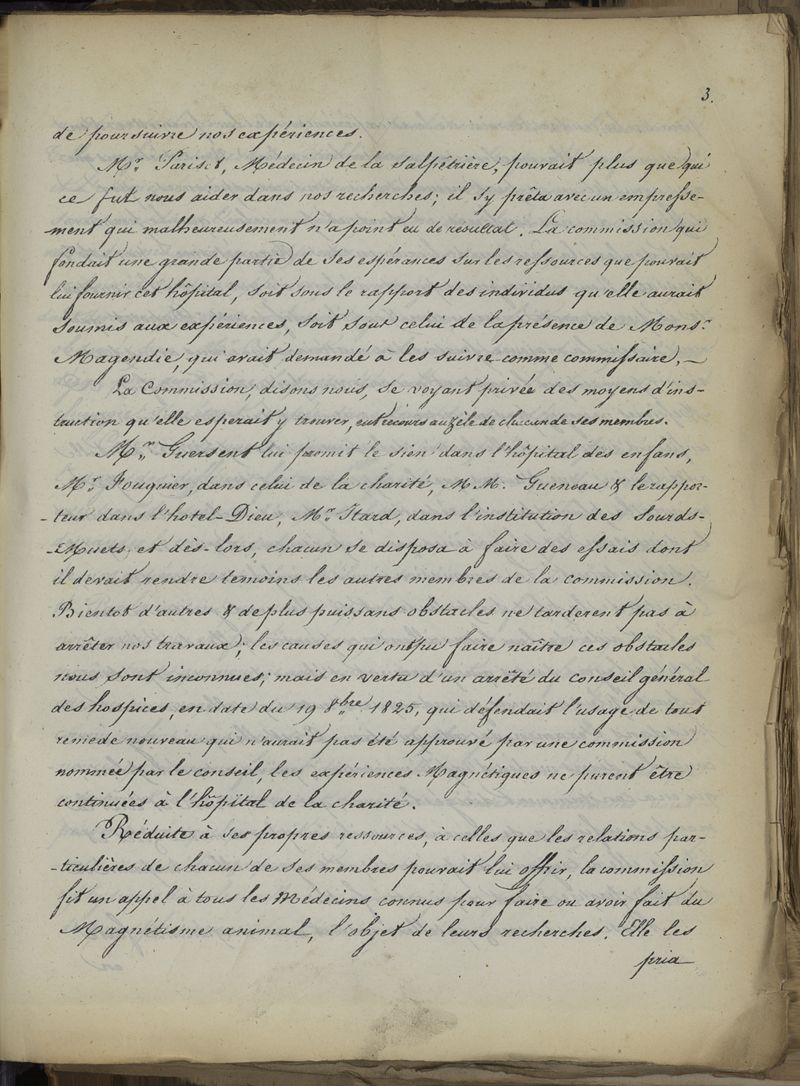 3.
de poursuivre nos expériences.
Mr. Pariset, Médecin de la Salpêtrière, pouvait plus que qui
ce fut nous aider dans nos recherches; il s'y prêta avec un empresse-
-ment qui malheureusement n'a point eu de résultat. La commission qui
fondait une grande partie de ses espérances sur les ressources que pouvait
lui fournir cet hôpital, soit sous le rapport des individus qu'elle aurait
soumis aux expériences, soit sous celui de la présence de Monsr.
Magendie, qui avait demandé à les suivre comme commissaire, —
La Commission, disons nous, se voyant privée des moyens d'ins-
truction qu'elle esperait y trouver, eut recours au zèle de chacun de ses membres.
Mr. Guersent lui promit le sien dans l'hôpital des enfans,
Mr. Fouquier, dans celui de la charité, M M. Gueneau & le rappor-
-teur dans l'hotel-Dieu, Mr. Itard, dans l'institution des Sourds-
-Muets, et dès-lors, chacun se disposa à faire des essais dont
il devait rendre temoins les autres membres de la commission.
Bientot d'autres & de plus puissans obstacles ne tarderent pas à
arrêter nos travaux; les causes qui ont pu faire naître ces obstacles
nous sont inconnues; mais en vertu d'un arrêté du Conseil général
des hospices, en date du 19 8bre 1825, qui défendait l'usage de tout
remede nouveau qui n'aurait pas été approuvé par une commission
nommée par le conseil, les expériences Magnétiques ne purent être
continuées à l'hôpital de la charité.
Réduite à ses propres ressources, à celles que les relations par-
-ticulières de chacun de ses membres pouvait lui offrir, la commission
fit un appel à tous les Médecins connus pour faire ou avoir fait du
Magnétisme animal, l'objet de leurs recherches. Elle les
pria